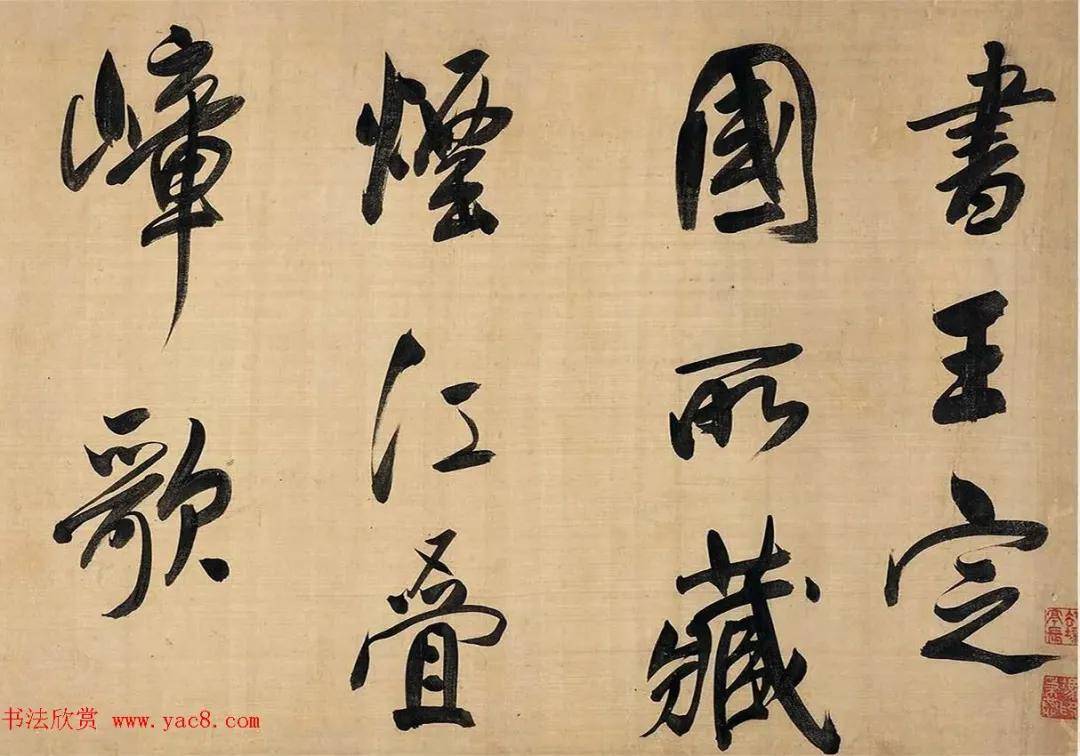 書王定
國所藏
煙江叠
嶂歌
书法欣赏 www.yac8.com